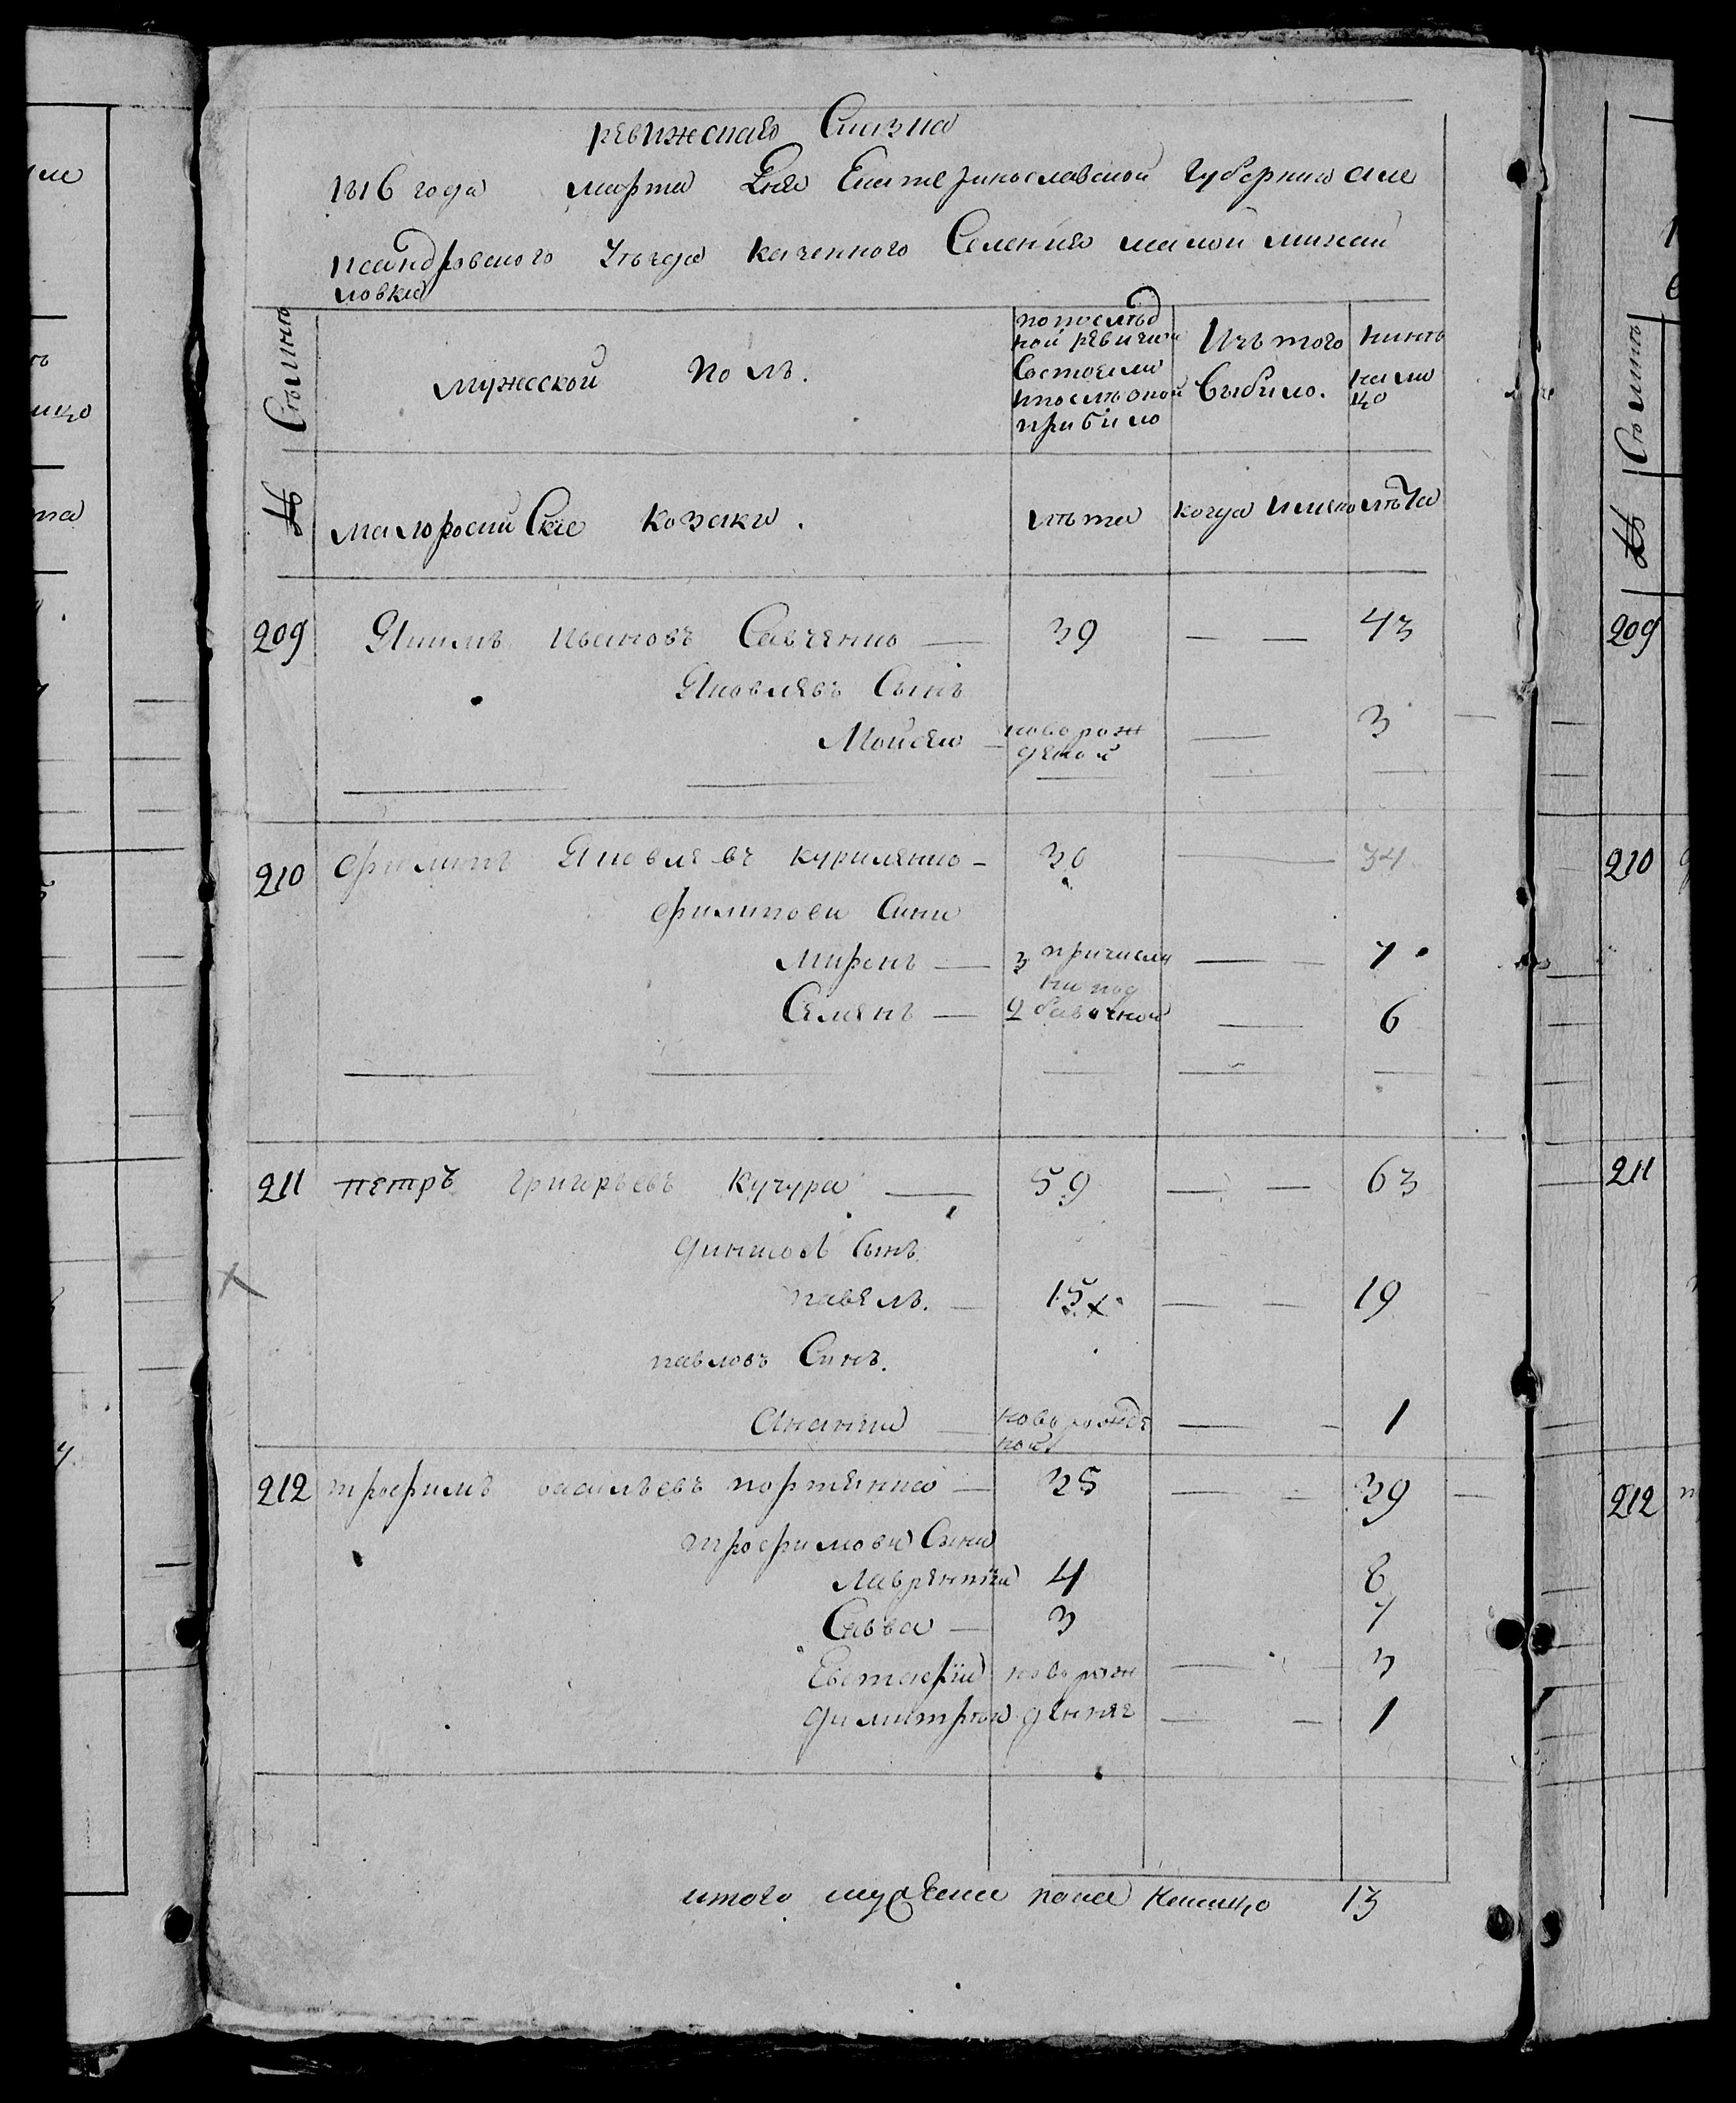 ревижская Сказка
1816 года марта дня Екатеринославской губернии алек
сандровского уѣзда казенного Селения малой михай
ловки
№ Семьѣ
мужеской полъ.
по послѣд
ней ревизии
Состояли
и послѣ оной
прибило
Изъ того
выбило.
нинѣ
на ли
цо
малоросийские козаки.
лѣта
когда именно
лѣта
209 Якимъ ивановъ Савченко — 39 — — 43
Яковлевъ Сынъ
Мойсей — новорож
деной — 3
210 филипъ Яковлевъ куриленко — 30 — 34
филипови Сини
Миронъ — 3 причисле
ни под — 7
Семенъ — 2 бавочной — 6
211 петръ григорьевъ кучура — 59 — — 63
Сынъ.
павелъ. — 15 х — — 19
павловъ Синъ.
Анания — новорожде
ной — 1
212 трофимъ васильевъ портянко — 35 — — 39
трофимови Сини
Лаврентий 4 8
Савва — 3 7
Евстафий новорож — — 3
димитрий денние — — 1
итого мужеска пола налицо 13
209
210
211
212